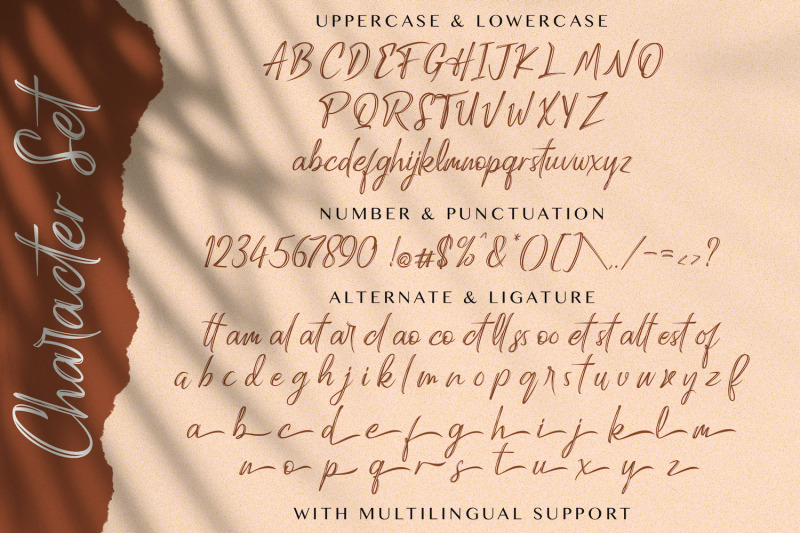 Character Set
UPPERCASE & LOWERCASE
ABCDEFGHIJKLMNO
PQRSTUVWXYZ
abcdefghijklmnopqrstuvwxyz
NUMBER & PUNCTUATION
1234567890 !@#$%^&*()[]\,./-=<>?
ALTERNATE & LIGATURE
tt am al at ar cl ao co ct ll ss oo et st alt est of
a b c d e g h j i k l m n o p q r s t u v w x y z f
a b c d e f g h i j k l m
n o p q r s t u x y z
WITH MULTILINGUAL SUPPORT